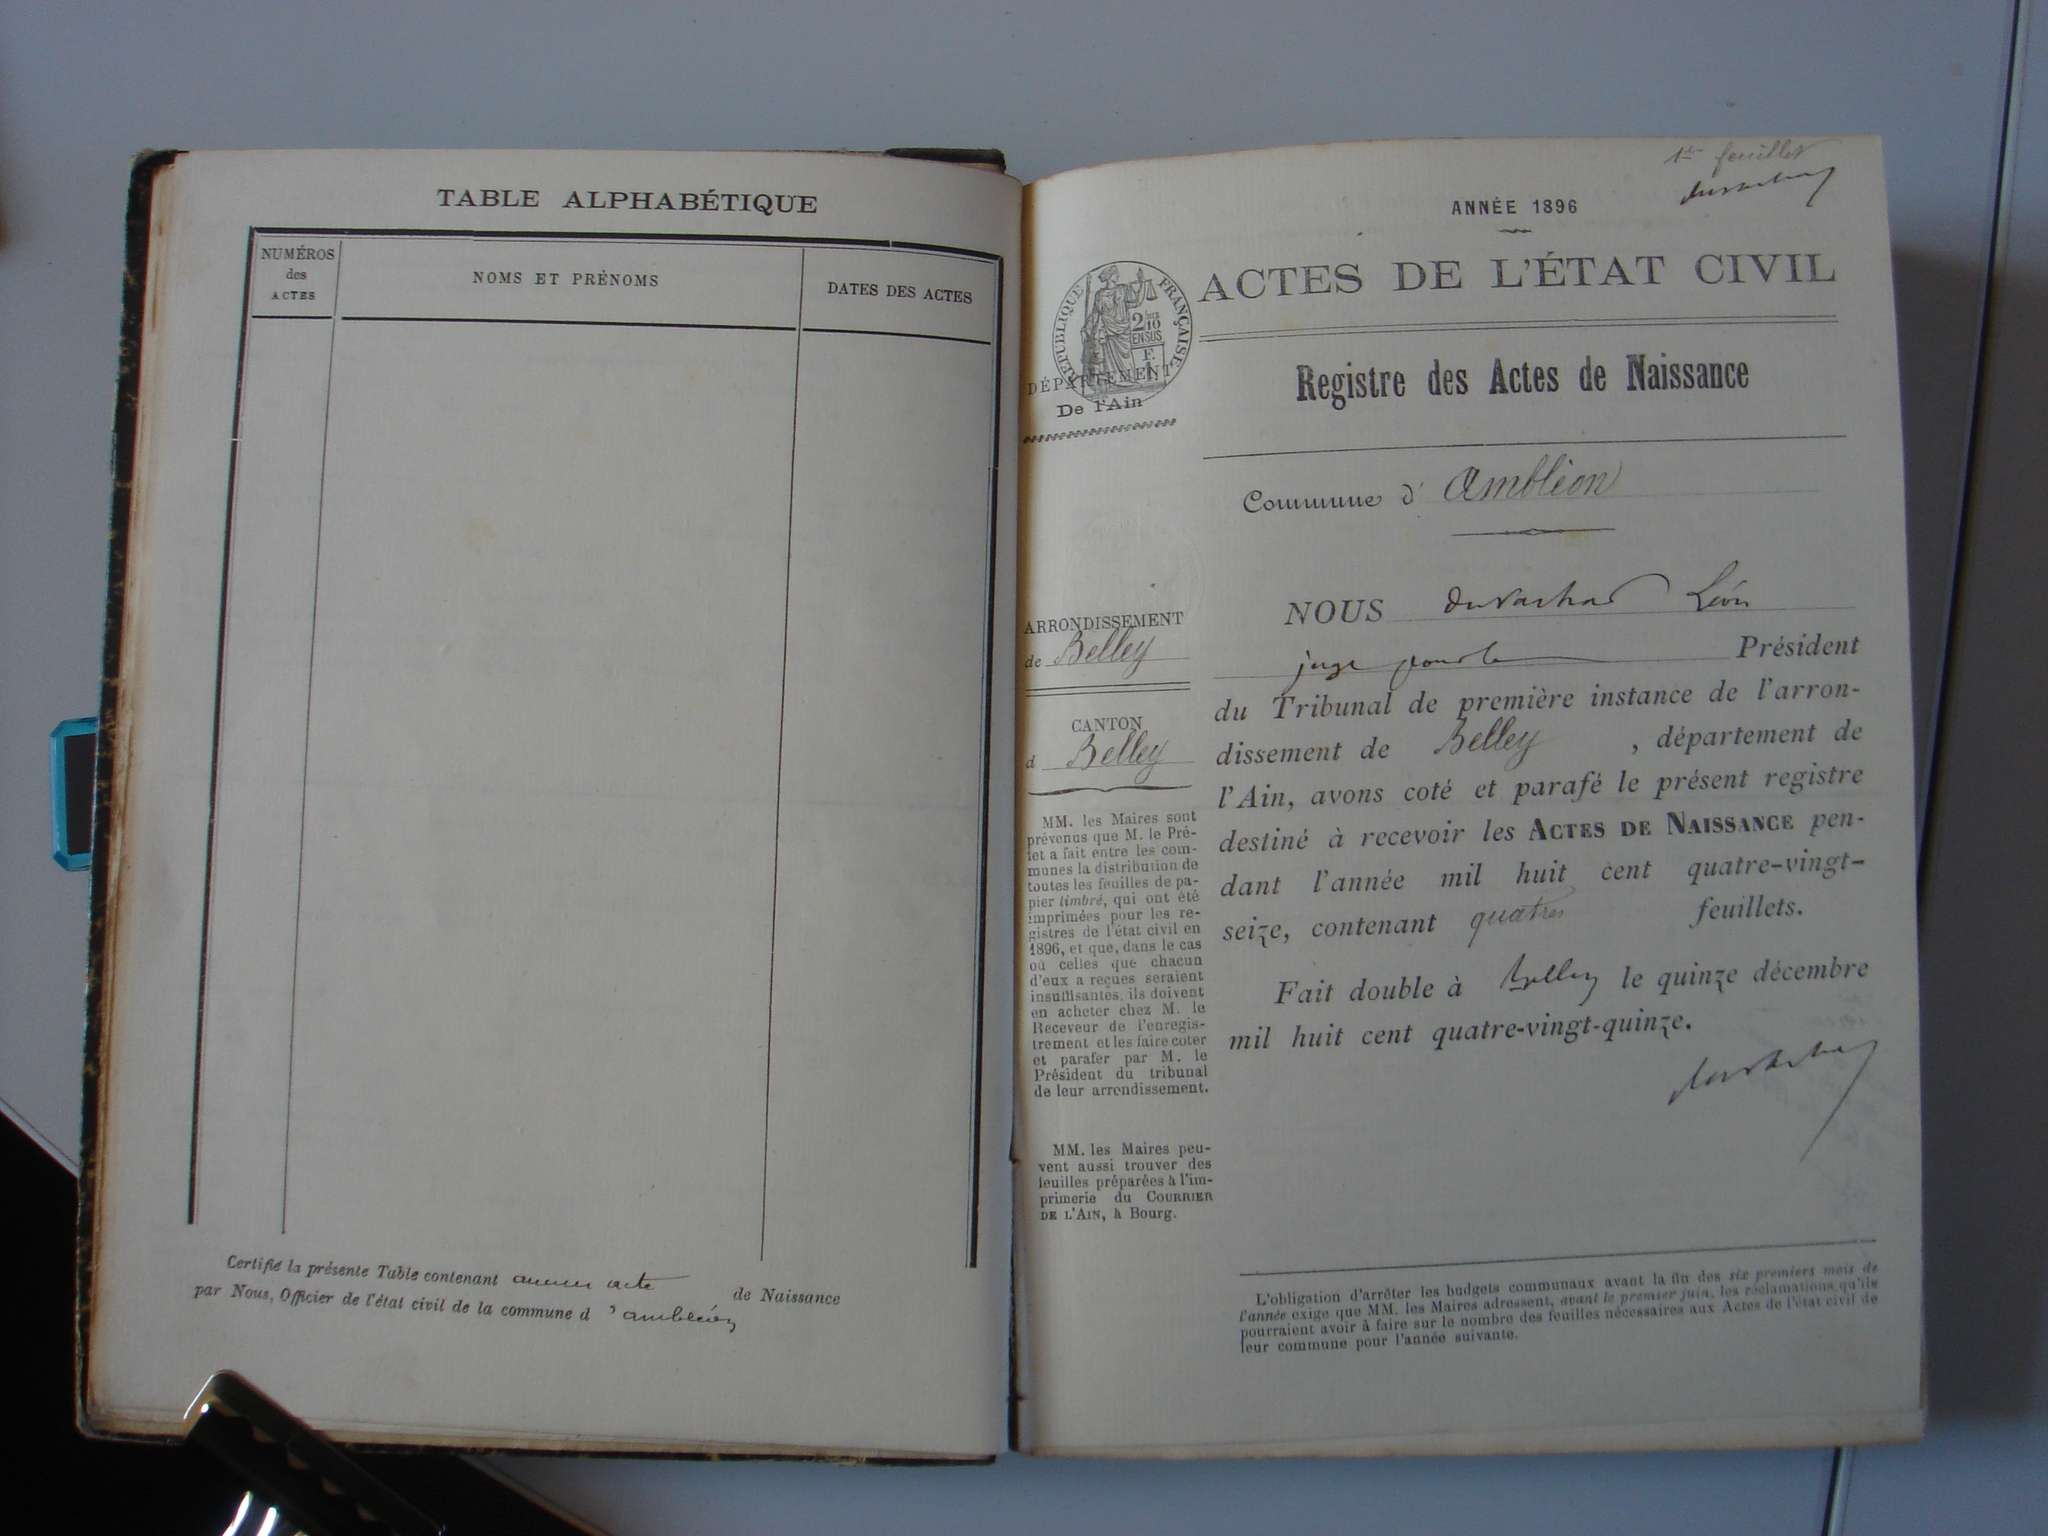 TABLE ALPHABÉTIQUE
NUMÉROS
des
ACTES
NOMS ET PRÉNOMS
DATES DES ACTES
Certifié la présente Table contenant aucun acte de Naissance
par Nous, Officier de l'état civil de la commune d 'ambléon
1er feuillet
ANNÉE 1896
ACTES DE L'ÉTAT CIVIL
RÉPUBLIQUE FRANÇAISE
2/10
EN SUS
DÉPARTEMENT
De l'Ain
Registre des Actes de Naissance
Commune d' Ambléon
ARRONDISSEMENT
de Belley
CANTON
d Belley
MM. les Maires sont
prévenus que M. le Pré-
fet a fait entre les com-
munes la distribution de
toutes les feuilles de pa-
pier timbré, qui ont été
imprimées pour les re-
gistres de l'état civil en
1896, et que, dans le cas
où celles que chacun
d'eux a reçues seraient
insuffisantes, ils doivent
en acheter chez M. le
Receveur de l'enregis-
trement et les faire coter
et parafer par M. le
Président du tribunal
de leur arrondissement.
MM. les Maires peu-
vent aussi trouver des
feuilles préparées à l'im-
primerie du COURRIER
DE L'AIN, à Bourg.
NOUS Léon
juge pour le Président
du Tribunal de première instance de l'arron-
dissement de Belley , département de
l'Ain, avons coté et parafé le présent registre
destiné à recevoir les ACTES DE NAISSANCE pen-
dant l'année mil huit cent quatre-vingt-
seize, contenant quatre feuillets.
Fait double à Belley le quinze décembre
mil huit cent quatre-vingt-quinze.
L'obligation d'arrêter les budgets communaux avant la fin des six premiers mois de
l'année exige que MM. les Maires adressent, avant le premier juin, les réclamations qu'ils
pourraient avoir à faire sur le nombre des feuilles nécessaires aux Actes de l'état civil de
leur commune pour l'année suivante.